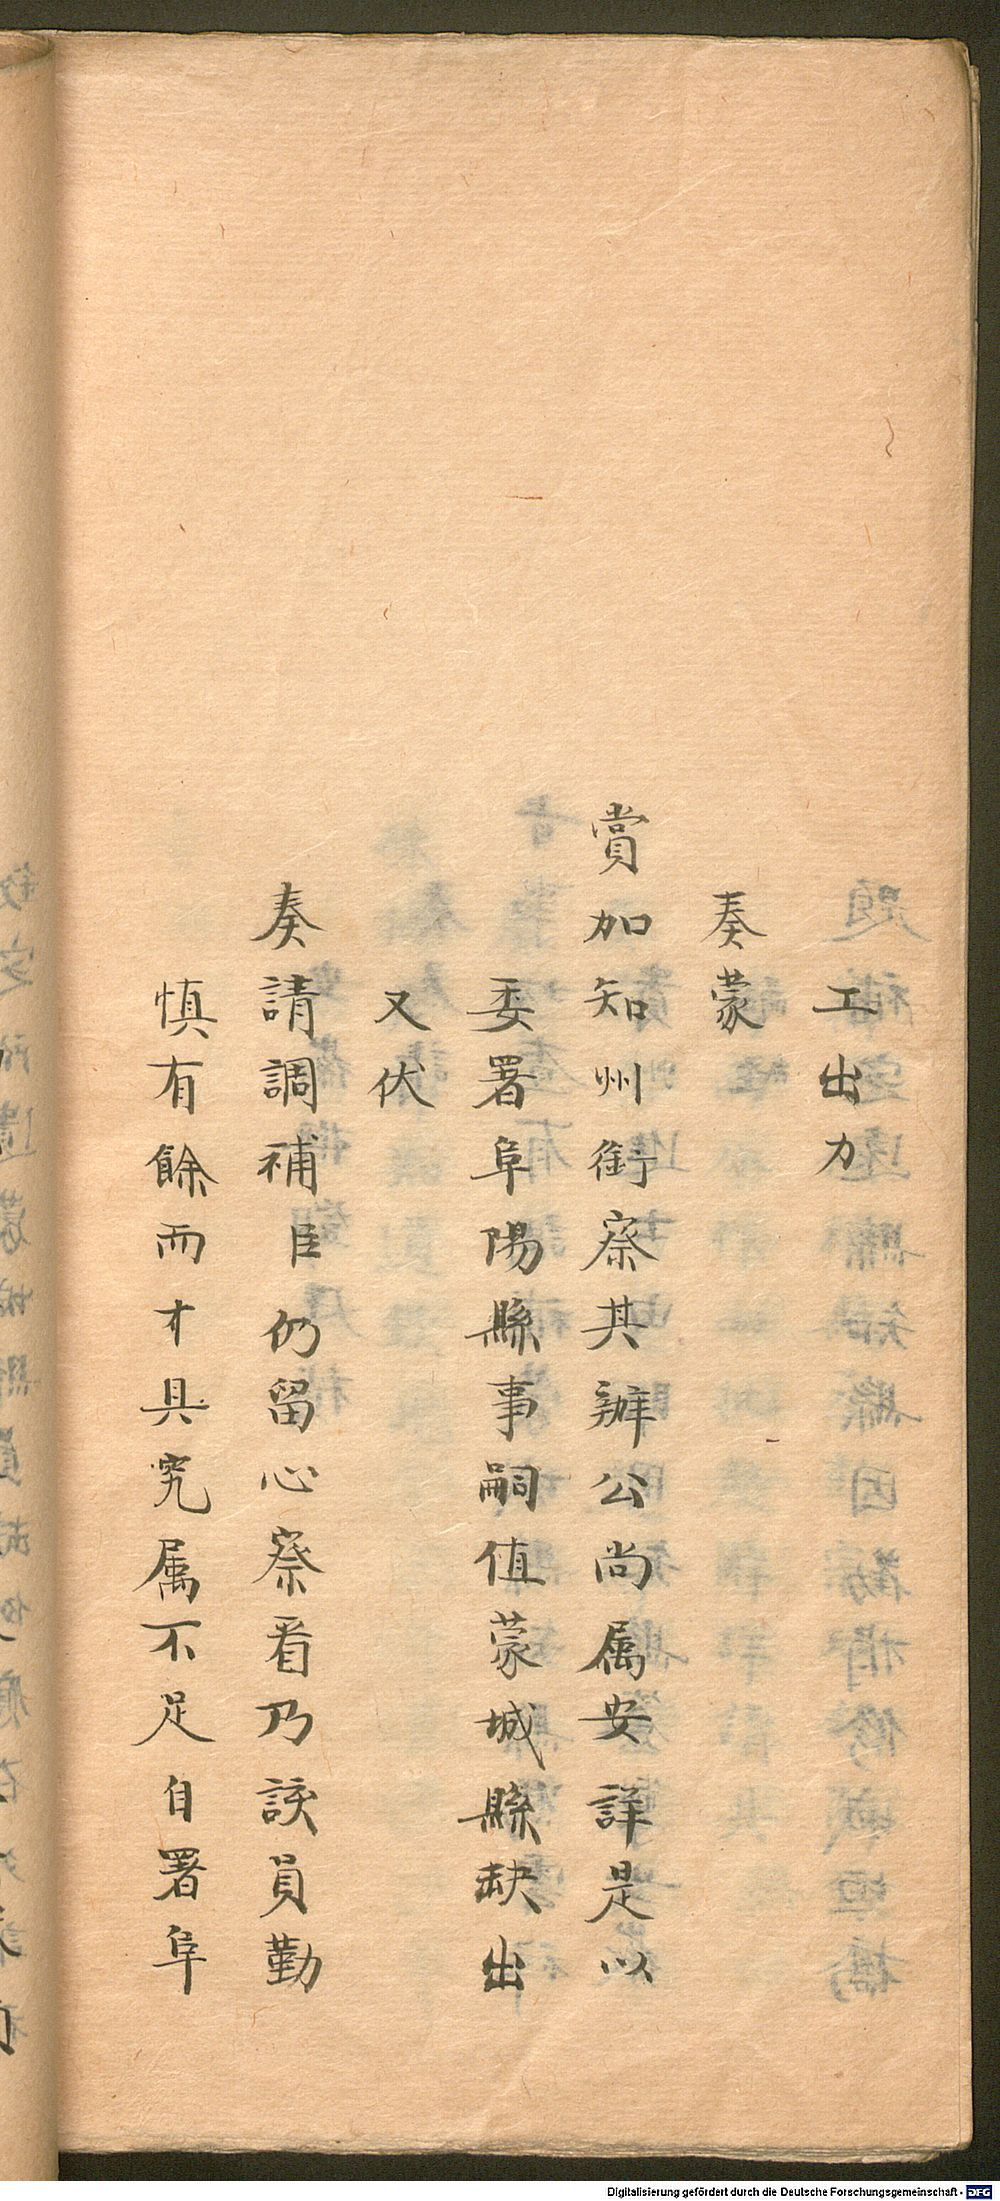 工出力
奏蒙
賞加知州銜察其辦公尚属安詳是以
委署阜陽縣事嗣值蒙城縣缺出
又伏
奏請調補臣仍留心察看乃該員勤
慎有餘而才具究属不足自署阜
Digitalisierung gefördert durch die Deutsche Forschungsgemeinschaft - DFG